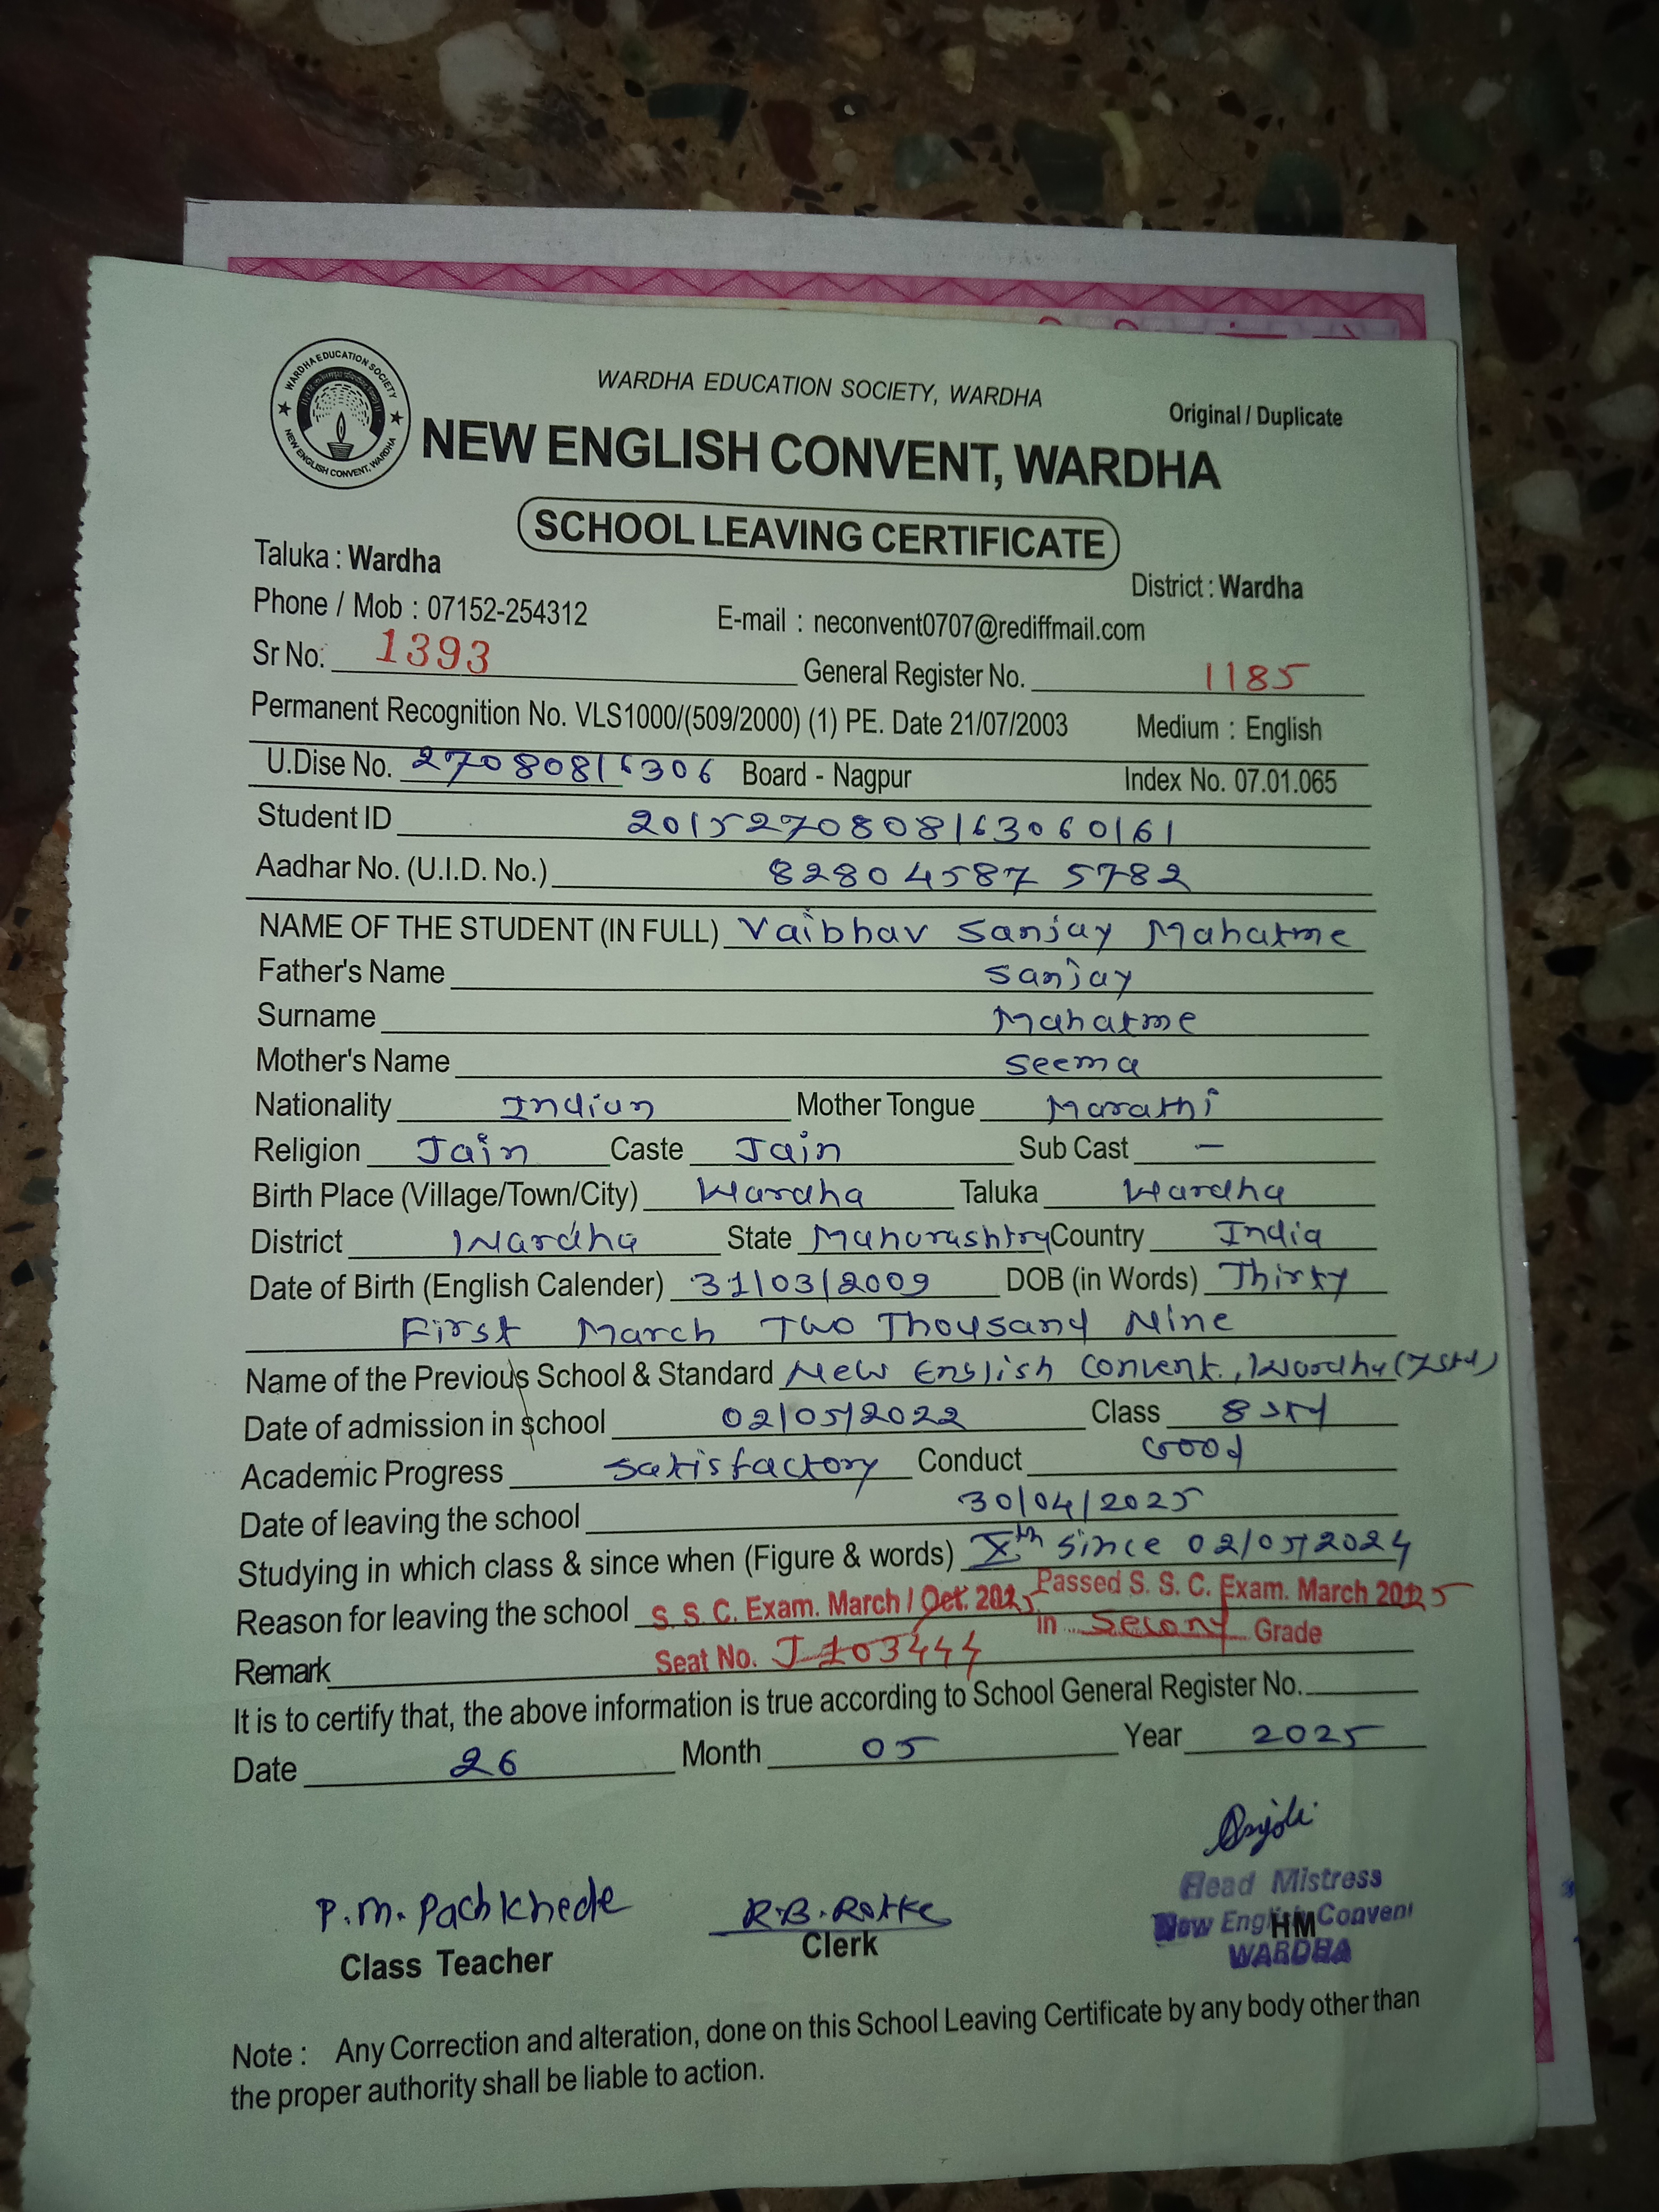 WARDHA EDUCATION SOCIETY
NEW ENGLISH CONVENT, WARDHA
WARDHA EDUCATION SOCIETY, WARDHA
Original / Duplicate
NEW ENGLISH CONVENT, WARDHA
SCHOOL LEAVING CERTIFICATE
Taluka : Wardha District : Wardha
Phone / Mob : 07152-254312 E-mail : neconvent0707@rediffmail.com
Sr No. 1393 General Register No. 1185
Permanent Recognition No. VLS1000/(509/2000) (1) PE. Date 21/07/2003 Medium : English
U.Dise No. 27080816306 Board - Nagpur Index No. 07.01.065
Student ID 2015270808163060161
Aadhar No. (U.I.D. No.) 8280 4587 5782
NAME OF THE STUDENT (IN FULL) Vaibhav Sanjay Mahatme
Father's Name Sanjay
Surname Mahatme
Mother's Name Seema
Nationality Indian Mother Tongue Marathi
Religion Jain Caste Jain Sub Cast —
Birth Place (Village/Town/City) Wardha Taluka Wardha
District Wardha State Maharashtra Country India
Date of Birth (English Calender) 31/03/2009 DOB (in Words) Thirty
First March Two Thousand Nine
Name of the Previous School & Standard New English Convent, Wardha (7std)
Date of admission in school 02/05/2022 Class 8 std
Academic Progress Satisfactory Conduct Good
Date of leaving the school 30/04/2025
Studying in which class & since when (Figure & words) Xth since 02/05/2024
Reason for leaving the school S. S. C. Exam. March / Oct. 2025 Passed S. S. C. Exam. March 2025
in Second Grade
Remark Seat No. J 103444
It is to certify that, the above information is true according to School General Register No.
Date 26 Month 05 Year 2025
P.M. Pachkhede
Class Teacher
R.B. Rotke
Clerk
Head Mistress
New English Convent
HM
WARDHA
Note : Any Correction and alteration, done on this School Leaving Certificate by any body other than
the proper authority shall be liable to action.